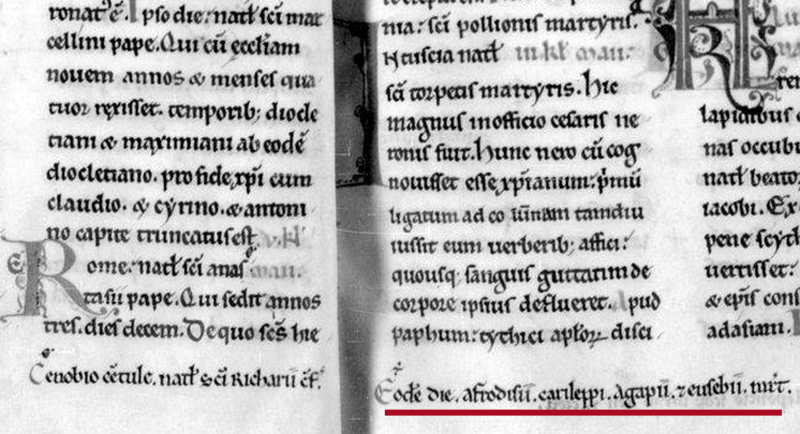 ronat᷒ ē. Ipso die: natƚ sc̄i mar
cellini pape. Qui cū eccƚiam
nouem annos & menses qua
tuor rexisset. temporib; diocle
tiani & maximiani ab eodē
diocletiano. pro fide xp̄i cum
claudio. & cyrino. & antoni
no capite truncatus est.
Rome. natƚ sc̄i anas
tasii pape. Qui sedit annos
tres. dies decem. De quo sc̄s hie
Cenobio cētule. natƚ sc̄i Richarii cf̄.
nia: sc̄i pollionis martyris.
N tuscia natƚ
sc̄i torpetis martyris. hic
magnus in officio cesaris ne
ronis fuit. hunc nero cū cog
nouisset esse xp̄ianum: p̄mū
ligatum ad columnam tamdiu
iussit eum uerberib; affici:
quousq; sanguis guttatim de
corpore ipsius deflueret. Apud
paphum: tythici apƚoꝝ disci
Eodē die. afrodisii. carileppi. Agapii. ⁊ eusebii. mr̄t.
lapidibus
nas occubu
natƚ beato
iacobi. Ex
pene scyth
uertisset:
& ep̄is cons
adasiani.